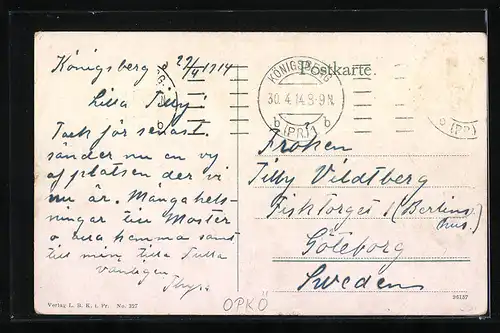 Königsberg 29/4 1914
Lilla Tilly!
Tack för senast.
sänder nu en vy
af platsen der vi
nu är. Många hels-
ningar till Moster
o alla hemma samt
till min lilla Tulla
vänligen
Postkarte.
KÖNIGSBERG
30.4.14.8-9N.
b (PR.)1 b
b (PR)
Fröken
Tilly Vildtberg
Fisktorget 1 (Berlins
hus.)
Göteborg
Sweden
Verlag L. B. K. i. Pr. No. 327
26157
OPKÖ